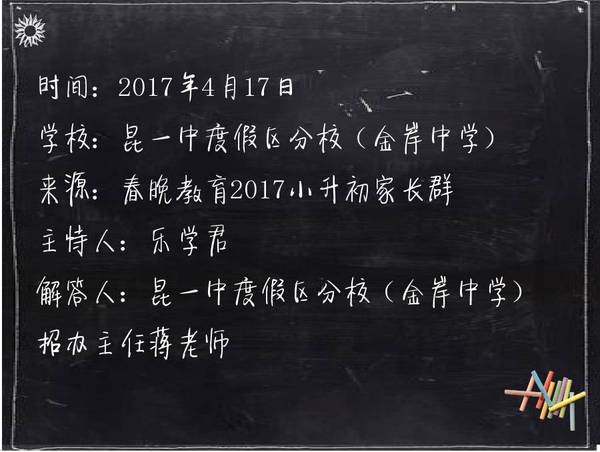 时间：2017年4月17日
学校：昆一中度假区分校（金岸中学）
来源：春晚教育2017小升初家长群
主持人：乐学君
解答人：昆一中度假区分校（金岸中学）
招办主任蒋老师